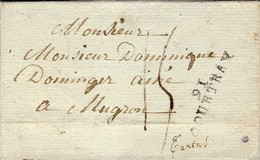 Monsieur
Monsieur Dominique
Dominger ainé
a Mugron
91
COURTRAY
Tartas